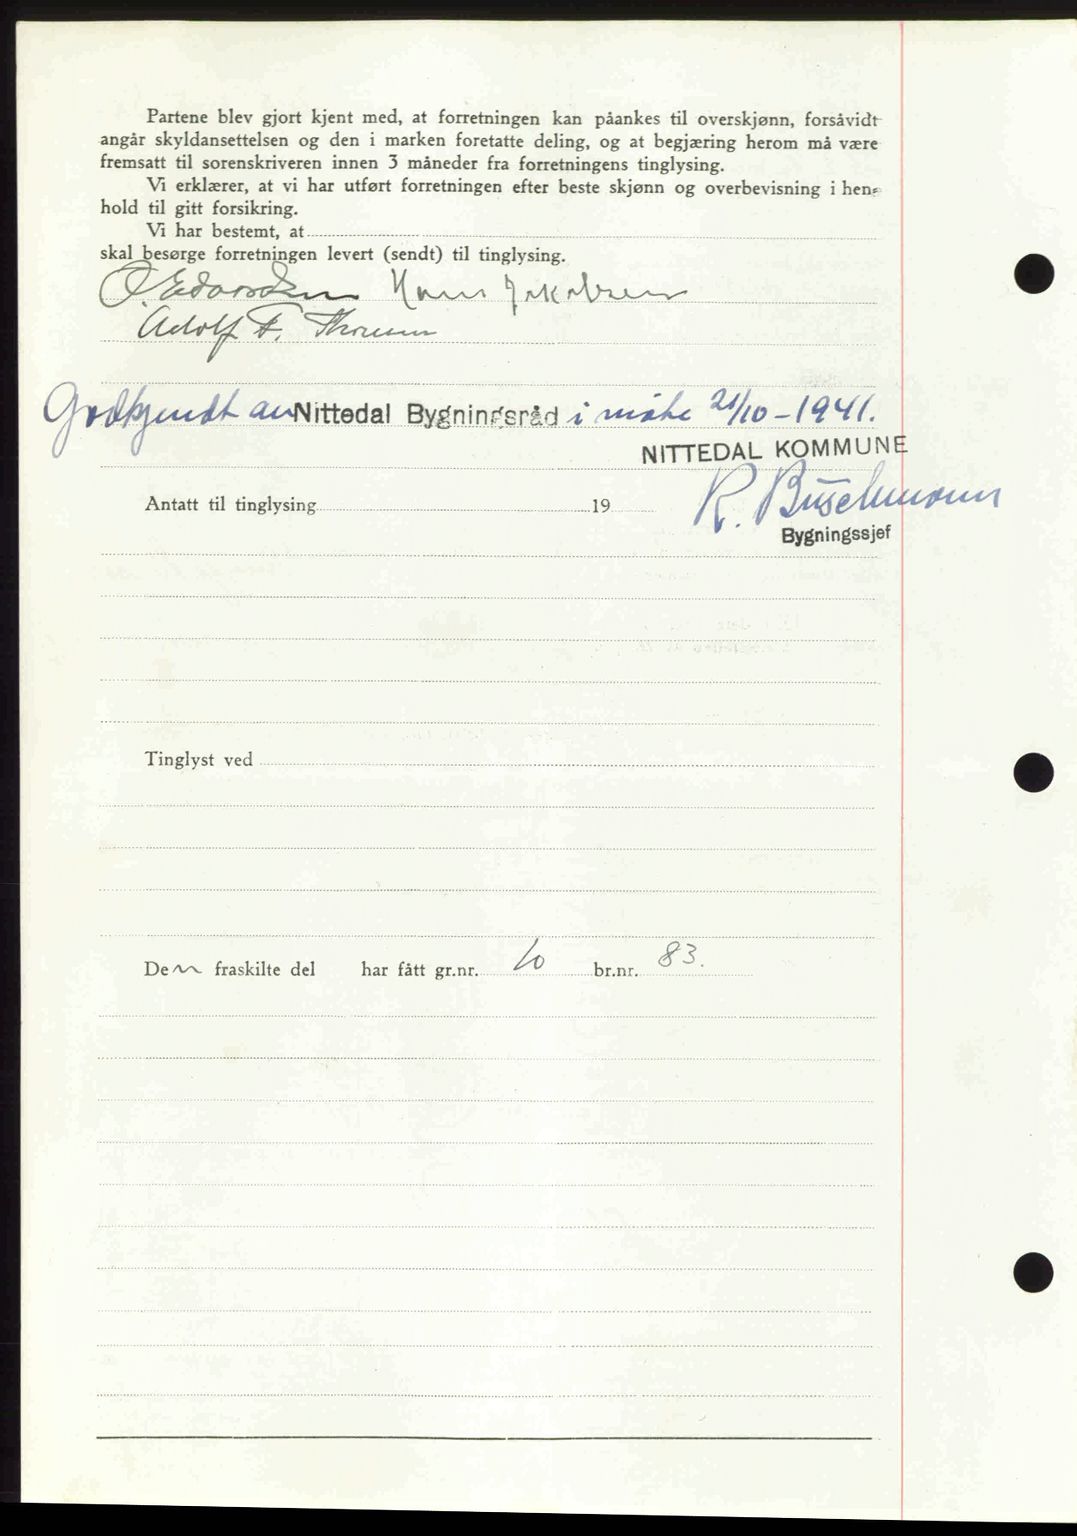 Partene blev gjort kjent med, at forretningen kan påankes til overskjønn, forsåvidt
angår skyldansettelsen og den i marken foretatte deling, og at begjæring herom må være
fremsatt til sorenskriveren innen 3 måneder fra forretningens tinglysing.
Vi erklærer, at vi har utført forretningen efter beste skjønn og overbevisning i hen-
hold til gitt forsikring.
Vi har bestemt, at
skal besørge forretningen levert (sendt) til tinglysing.
O. Edvardsen Hans Jakobsen
Adolf F. Thoresen
Godkjendt av Nittedal Bygningsråd i møte 21/10-1941.
NITTEDAL KOMMUNE
R. Buschmann
Antatt til tinglysing 19
Bygningssjef
Tinglyst ved
Den fraskilte del har fått gr.nr. 10 br.nr. 83.